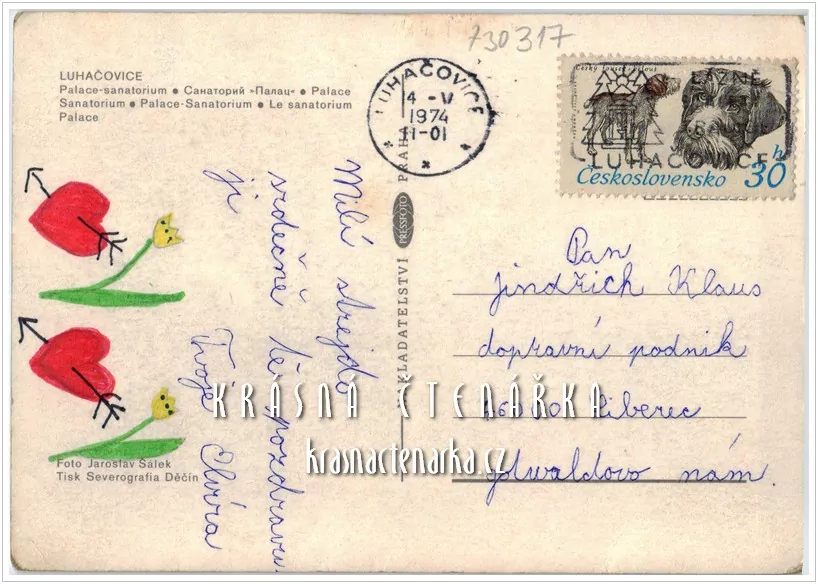 730317
LUHAČOVICE
Palace-sanatorium ● Санаторий »Палац« ● Palace
Sanatorium ● Palace-Sanatorium ● Le sanatorium
Palace
LUHAČOVICE
4 -V
1974
11-01
Český fousek
LÁZNĚ
LUHAČOVICE
Československo 30 h
Milí strejdo
srdečně tě pozdravu
ji
Tvoje
PRAHA
PRESSFOTO
VYDAVATELSTVÍ
Pan
Jindřich Klaus
dopravní podnik
46000 Liberec
gotwaldovo nám.
KRÁSNÁ ČTENÁŘKA
krasnactenarka.cz
Foto Jaroslav Šálek
Tisk Severografia Děčín